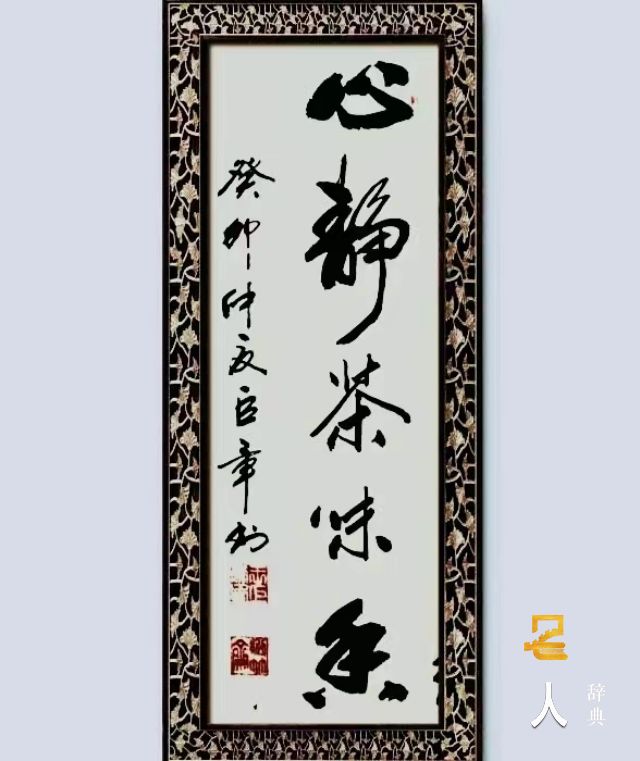 心静茶味香
癸卯仲夏臣章书
人
辞典